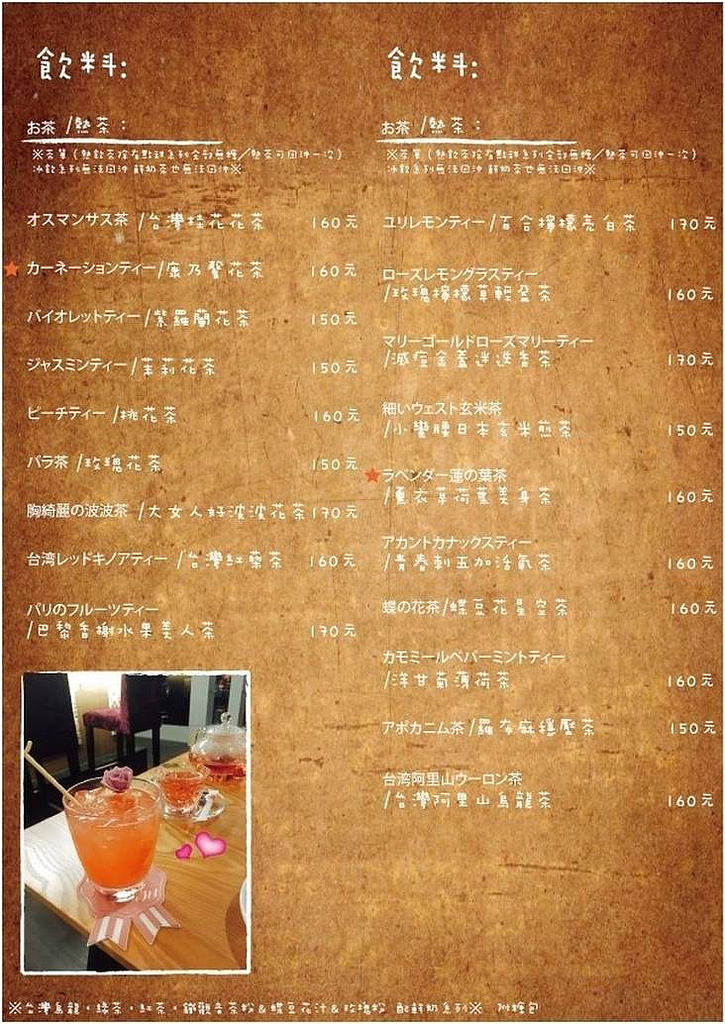 飲料:
お茶 /熱茶:
※茶單(熱飲茶除有點甜系列全部無糖/熱茶可回沖一次)
冰飲系列無法回沖 鮮奶茶也無法回沖※
オスマンサス茶 /台灣桂花花茶 160元
カーネーションティー/康乃馨花茶 160元
バイオレットティー/紫羅蘭花茶 150元
ジャスミンティー/茉莉花茶 150元
ピーチティー /桃花茶 160元
バラ茶 /玫瑰花茶 150元
胸綺麗の波波茶 /大女人好波波花茶 170元
台湾レッドキノアティー /台灣紅藜茶 160元
パリのフルーツティー
/巴黎香榭水果美人茶 170元
飲料:
お茶 /熱茶:
※茶單(熱飲茶除有點甜系列全部無糖/熱茶可回沖一次)
冰飲系列無法回沖 鮮奶茶也無法回沖※
ユリレモンティー/百合檸檬亮白茶 170元
ローズレモングラスティー
/玫瑰檸檬草輕盈茶 160元
マリーゴールドローズマリーティー
/減痘金盞迷迭香茶 170元
細いウェスト玄米茶
/小蠻腰日本玄米煎茶 150元
ラベンダー蓮の葉茶
/薰衣草荷葉美身茶 160元
アカントカナックスティー
/青春刺五加活氧茶 160元
蝶の花茶/蝶豆花星空茶 160元
カモミールペパーミントティー
/洋甘菊薄荷茶 160元
アポカニム茶/羅布麻穩壓茶 150元
台湾阿里山ウーロン茶
/台灣阿里山烏龍茶 160元
※台灣烏龍・綠茶・紅茶・鐵觀音茶粉&蝶豆花汁&玫瑰粉 配鮮奶系列※ 附糖包